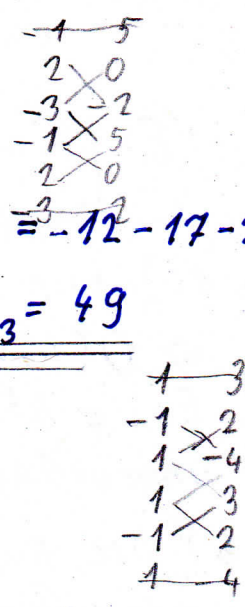 -1 5
2 0
-3 -2
-1 5
2 0
-3 2
= -12 - 17 -
3 = 49
1 3
-1 2
1 -4
1 3
-1 2
1 4